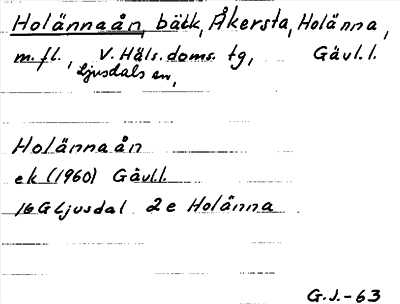 Holännaån, bäck, Åkersta, Holänna,
m.fl., V. Häls. doms. tg, Gävl.l.
Ljusdals sn,
Holännaån
ek (1960) Gävl.l.
16G Ljusdal 2e Holänna
G.J.-63